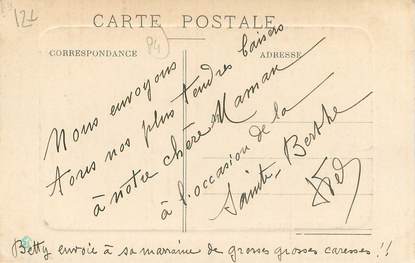 122
CARTE POSTALE
P4
CORRESPONDANCE
ADRESSE
Nous envoyons
Tous nos plus tendres baisers
à notre chère Maman
à l'occasion de la
Sainte Berthe
Betty envoie à sa marraine de grosses grosses caresses !!